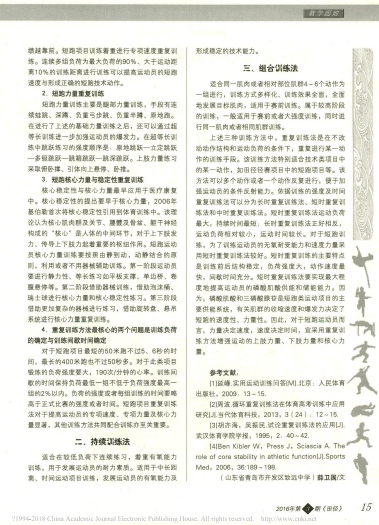 教学巡航
绩越靠前。短跑项目训练着重进行专项速度重复训
练。连续多组负荷为最大负荷的90%、大于运动距
离10%的训练距离进行训练可以提高运动员的短跑
速度与形成正确的短跑技术动作。
2. 短跑力量重复训练
短跑力量训练主要是腿部力量训练。手段有连
续蛙跳、深蹲、负重弓步跳、负重半蹲、原地跑。
在进行了上述的基础力量训练之后，还可以通过超
等长训练进一步加强运动员的爆发力。在超等长训
练中跳跃练习的强度顺序是：原地跳跃—立定跳跃
—多级跳跃—跳箱跳跃—跳深跳跃。上肢力量练习
采取俯卧撑、引体向上悬停、卧推。
3. 短跑核心力量与稳定性重复训练
核心稳定性与核心力量最早应用于医疗康复
中。核心稳定性的提出要早于核心力量，2006年
基伯勒首次将核心稳定性引用到体育训练中。该理
论认为核心肌肉群及关节、腰髋及骨盆、躯干神经
构成的“核心”是人体的中间环节，对于上下肢发
力、传导上下肢力起着重要的枢纽作用。短跑运动
员核心力量训练要按照由静到动，动静结合的原
则，利用或者不用器械辅助训练。第一阶段运动员
要进行静力性、等长练习如平板支撑、单边桥、卷
腹悬停等。第二阶段借助器械训练，借助泡沫桶、
瑞士球进行核心力量和核心稳定性练习。第三阶段
借助更加复杂的器械进行练习，借助旋转盘、悬吊
系统进行核心力量重复训练。
4. 重复训练方法最核心的两个问题是训练负荷
的确定与训练间歇时间确定
对于短跑项目最短的50米跑不过5、6秒的时
间，最长的400米跑也不过50秒多，对于此类项目
锻炼的负荷强度要大，190次/分钟的心率。训练间
歇的时间保持负荷最低一组不低于负荷强度最高一
组的2%以内。负荷的强度或者每组训练的时间要略
高于正式比赛的强度或者时间。短跑项目重复训练
法对于提高运动员的专项速度、专项力量及核心力
量显著，其他训练方法共同配合训练亦至关重要。
二、持续训练法
适合在较低负荷下连续练习，着重有氧能力
训练。用于发展运动员的耐力素质。适用于中长距
离、时间运动项目训练，发展运动员的有氧能力及
形成稳定的技术能力。
三、组合训练法
适合同一肌肉或者相对部位肌群4~6个动作为
一组进行，训练方式多样化、训练效果全面，全面
地发展目标肌肉，适用于赛前训练。属于较高阶段
的训练，一般适用于赛前或者大强度训练，同时进
行同一肌肉或者相同肌群训练。
上述三种训练方法中，重复训练法是在不改
动动作结构和运动负荷的条件下，重复进行某一动
作的训练手段。该训练方法特别适合技术类项目中
的某一动作，如田径径赛项目中的短跑项目等。该
方法可以多个动作或者一个动作反复进行，便于加
强运动员的条件反射能力。依据训练的强度及时间
重复训练法可以分为长时重复训练法、短时重复训
练法和中时重复训练法。短时重复训练法运动负荷
最大，持续时间最短，长时重复训练法正好相反，
运动负荷相对较小，运动时间较长。对于短跑训
练，为了训练运动员的无氧耐受能力和速度力量采
用短时重复训练法较好。短时重复训练的主要特点
是训练前后坡构稳定，负荷强度大，动作速度最
快，间歇时间充分。短时重复训练法要实现最大程
度地提高运动员的磷酸肌酸供能和储能能力。因
为，磷酸肌酸和三磷酸腺苷是短跑类运动项目的主
要供能系统。有关肌群的收缩速度和爆发力决定了
短跑的速度性、力量性。因此，对于短跑运动员而
言，力量决定速度，速度决定时间，宜采用重复训
练方法增强运动的上肢力量、下肢力量和核心力
量。
参考文献：
[1]延峰.实用运动训练问答[M].北京：人民体育
出版社，2009：13-15.
[2]周波.循环重复训练法在体育高考训练中应用
研究[J].当代体育科技，2013，3（24）：12-15.
[3]胡亦海、吴振民.试论重复训练法的应用[J].
武汉体育学院学报，1995，2：40-42.
[4]Ben Kibler W，Press J，Sciascia A. The
role of core stability in athletic function[J].Sports
Med，2006，36:189-198.
（山东省青岛市开发区致远中学｜薛卫国/文）
2016年第 期《田径》 15
?1994-2018 China Academic Journal Electronic Publishing House. All rights reserved. http://www.cnki.net